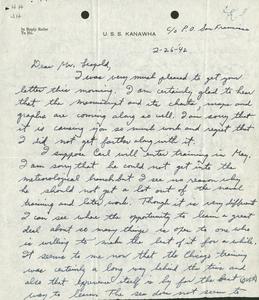 In Reply Refer
To No.
U. S. S. KANAWHA
c/o P.O. San Francisco
2-26-42
Dear Mr. Leopold,
I was very much pleased to get your
letter this morning. I am certainly glad to hear
that the manuscript and its charts, maps and
graphs are coming along so well. I am sorry that
it is causing you so much work and regret that
I did not get farther along with it.
I suppose Carl will enter training in May.
I am sorry that he could not get into the
meteorological branch but I see no reason why
he should not get a lot out of the naval
training and later work. Though it is very different
I can see what the opportunity to learn a great
deal about so many things is open to one who
is willing to make the best of it for a while.
It seems to me now that the Chicago training
was certainly a long way behind the times and
also that experience itself is by far the best
way to learn. The sea does not seem to